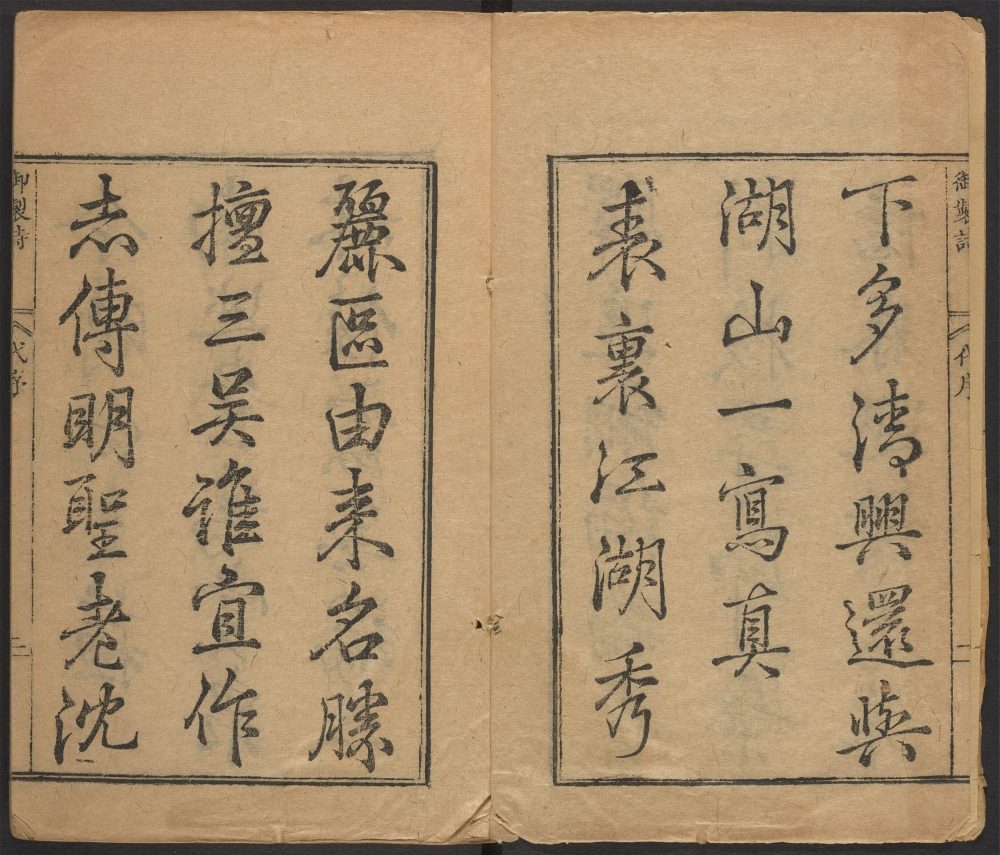 御製詩
代序
二
下多清興還與
湖山一寫真
表裏江湖秀
麗區由来名勝
擅三吴誰宜作
志傳明聖老沈
御製詩
代序
三